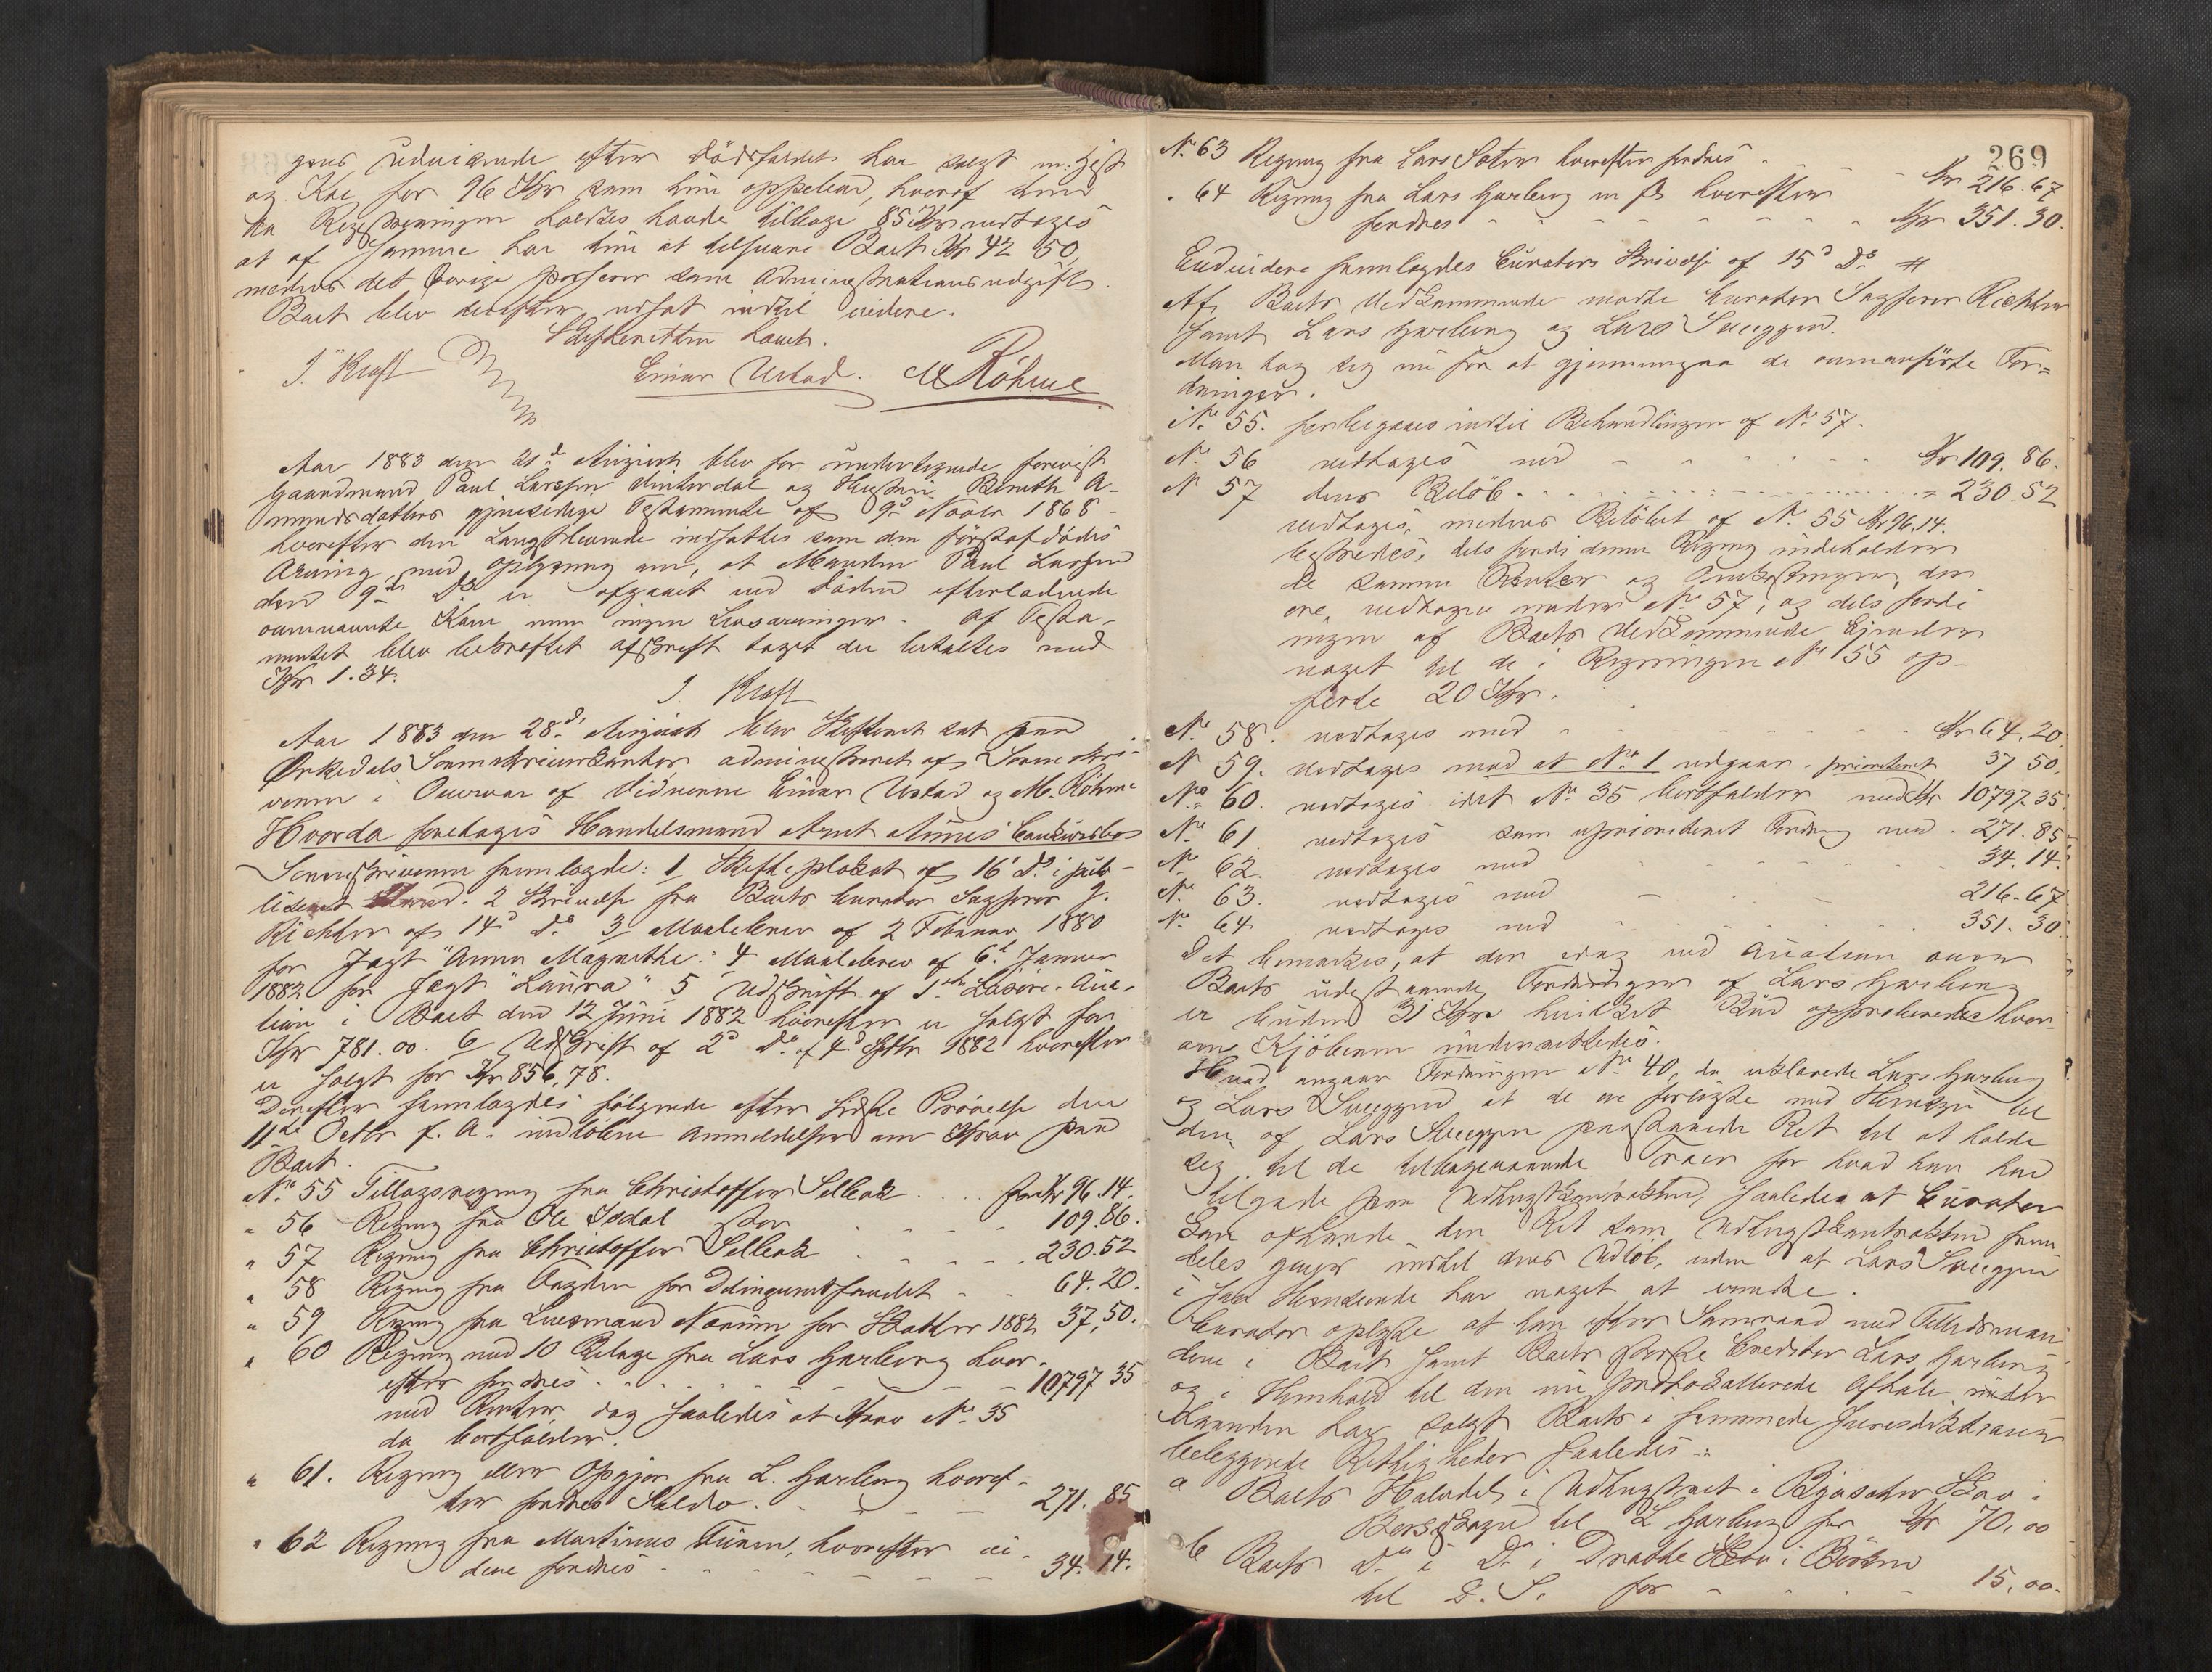 gens udvisende efter Dödsfaldet har solgt 1 Hest
og Kar for 96 Kr som hun oppebar, hvoraf hun
da Registreringen holdtes havde tilbage 85 Kr vedtoges
at af Samme har hun at tilsvare Boet Kr 42 50,
medens det Övrige passerer som Administrationsudgift.
Boet blev derefter udsat indtil videre.
Skifteretten hævet.
J. Kraft Einar Ustad. M Röhme
Aar 1883 den 21d August blev for undertegnede forevist
Gaardmand Paul Larssen og Hustru Bereth A-
mundsdatters gjensidige Testamente af 9d Novbr 1868
hvorefter den Længstlevende indsattes som den förstafdödes
Arving med Oplysning om, at Manden Paul Larssen
den 9de Ds er afgaaet ved Döden efterladende
ovennævnte Kone men ingen Livsarvinger. Af Testa-
mentet blev bekræftet Afskrift taget der betaltes med
Kr 1.34.
J. Kraft
Aar 1883 den 28d August blev Skifteret sat paa
Orkedals Sorenskriverkontor administreret af Sorenskri-
veren i Overvær af Vidnerne Einar Ustad og M. Röhme
Hvorda foretoges Handelsmand Arnt Aunes Concursbo
Sorenskriveren fremlagde: 1, Skifteplakat af 16 Ds i pub-
liceret Stand. 2 Skrivelse fra Boets Curator Sagförer J.
Richter af 14d Ds 3, Maalebrev af 2 Februar 1880
for Jagt "Anna Magrethe." 4 Maalebrev af 6t Januar
1882 for Jagt "Laura" 5 Udskrift af 1ste Lösöre-Auc-
tion i Boet den 12 Juni 1882 hvorefter er solgt for
Kr 781.00. 6 Udskrift af 2d Do af 4d Septbr 1882 hvorefter
er solgt for Kr 856,78.
Derefter fremlagdes fölgende efter sidste Prövelse den
11te Octbr f. A. indlobne Anmeldelser om Krav paa
Boet.
No 55 Tillægsregning fra Christoffer Selbak . . . . for Kr 96.14.
" 56 Regning fra Ole Isdal stor 109.86.
" 57 Regning fra Christoffer Selbak . . . . 230.52
" 58 Regning fra Fogden for Delinqventfondet - - 64.20.
" 59 Regning fra Lensmand Norum for Skatter 1882 37,50.
" 60 Regning med 10 Bilage fra Lars Garberg hvor-
efter fordres - - - - 10797 35
med Renter dog saaledes at Krav No 35
da bortfalder.
" 61. Regning eller Opgjør fra L. Garberg hvoref-
ter fordres Saldo. - - - 271. 85
" 62 Regning fra Martinus , hvorefter vi-
dere fordres - - - - - 34. 14.
269
No 63 Regning fra Lars Soter hvorefter fordres - - Kr 216.67
. 64 Regning fra Lars Garberg m fl hvorefter
fordres - - - - - - Kr 351.30.
Endvidere fremlagdes Curators Skrivelse af 15d Ds
Af Boets Vedkommende mødte Curator Sagförer Richter
samt Lars Garberg og Lars Sneggen.
Man tog sig nu for at gjennemgaa de ovenanförte For=
dringer.
No 55. forbigaaes indtil Behandlingen af No 57.
No 56 vedtoges med - - - - - Kr 109.86.
No 57 dens Belöb . . . . . . . . 230.52
vedtoges, medens Belöbet af No 55 Kr 96.14.
bestredes, dels fordi denne Regning indeholder
de samme Renter og Omkostninger, der
ere vedtagne under No 57, og dels fordi
ingen af Boets Vedkommende kjender
noget til de i Regningen No 55 op-
förte 20 Kr.
No 58. vedtoges med - - - - - Kr 64.20.
No 59. vedtoges med at No 1 udgaar. prioriteret 37 50.
No 60. vedtoges idet No 35 bortfalder med Kr 10797.35.
No 61. vedtoges som uprioriteret Fordring med . 271.85
No 62. vedtoges med 34.14.
No 63. vedtoges med - - 216.67
No 64 vedtoges med 351.30.
Det bemærkes, at der idag ved Auction over
Boets udestaaende Fordringer af Lars Garberg
er buden 31 Kr hvilket Bud approberedes hvor-
om Kjöberen underrettedes.
Hvad angaar Fordringen No 40, da erklærede Lars Garberg
og Lars Sneggen at de ere forligte med Hensyn til
den af Lars Sneggen paastaaede Ret til at holde
sig til de tilbageværende Træer for hvad han har
tilgode paa Udhugstkontrakten, saaledes at Curator
kan afhænde den Ret som Udhugstkontrakten frem-
deles giver indtil dens Udlöb, uden at Lars Sneggen
i saa Henseende har noget at erindre.
Curator oplyste at han efter Samraad med Tillidsmæn-
dene i Boet samt Boets störste Creditor Lars Garberg
og i Henhold til den nu protokollerede Aftale under
Haanden har solgt Boets i fremmede Jurisdiktioner
beliggende Rettigheder saaledes:
a Boets Halvdel i Udhugstret i Skov i
til L Garberg for Kr 70,00
b Boets Do i Do i Skov i Börsen
til D. S. for - - - 15,00.